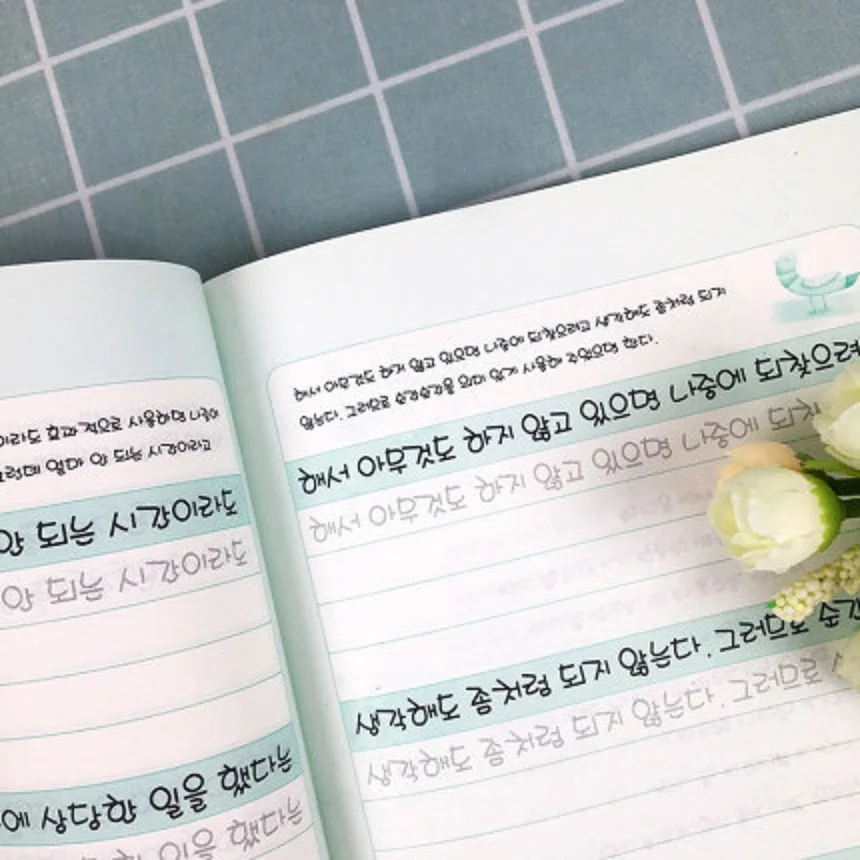 이라도 효과적으로 사용하면 나중에
그런데 얼마 안 되는 시간이라고
안 되는 시간이라도
안 되는 시간이라도
에 상당한 일을 했다는
일을 했다는
해서 아무것도 하지 않고 있으면 나중에 되찾으려고 생각해도 좀처럼 되지
않는다. 그러므로 순간순간을 의미 있게 사용해 주었으면 한다.
해서 아무것도 하지 않고 있으면 나중에 되찾으려
해서 아무것도 하지 않고 있으면 나중에 되찾
생각해도 좀처럼 되지 않는다. 그러므로 순간
생각해도 좀처럼 되지 않는다. 그러므로